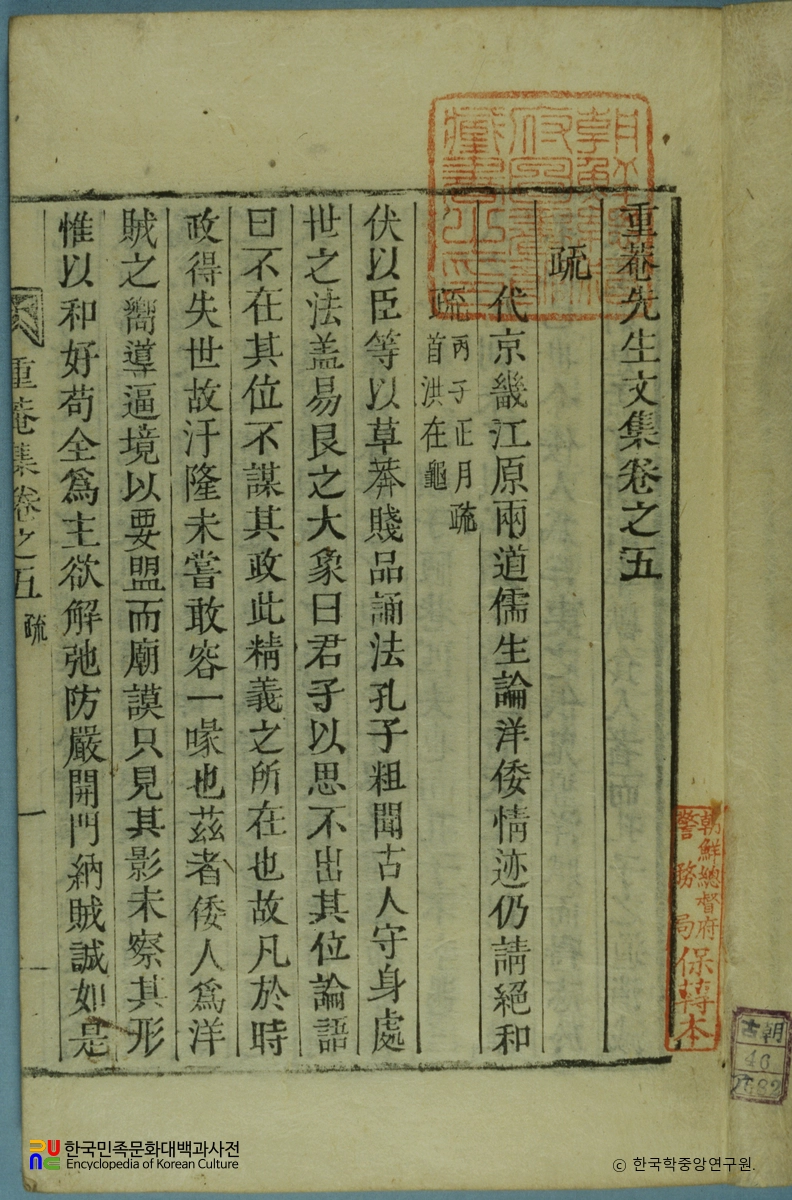 重菴先生文集卷之五
疏
代京畿江原兩道儒生論洋倭情迹仍請絕和
疏
丙子正月疏
首洪在龜
伏以臣等以草莽賤品誦法孔子粗聞古人守身處
世之法盖易艮之大象曰君子以思不出其位論語
曰不在其位不謀其政此精義之所在也故凡於時
政得失世故汙隆未嘗敢容一喙也茲者倭人爲洋
賊之嚮導逼境以要盟而廟謨只見其影未察其形
惟以和好苟全爲主欲解弛防嚴開門納賊誠如是
重菴集卷之五
疏
一
朝鮮總督府
警務局
保轉本
朝
古
46
한국민족문화대백과사전
Encyclopedia of Korean Culture
ⓒ 한국학중앙연구원.